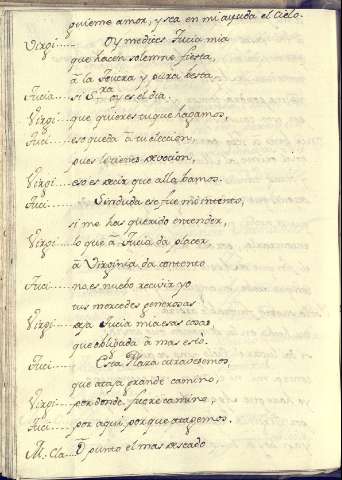 quieme amor, y sea en mi ayuda el Cielo.
Virgi..... Oy me dices Jucia mia
que hacen solemne fiesta,
à la severa y pura besta,
Jucia.... si S.ra oy es el dia.
Virgi.... que quieres tu que hagamos,
Juci.... eso queda à tu eleccion,
pues le tienes devocion,
Virgi.... eso es decir que alla bamos.
Juci.... Sin duda ese fue mi intento,
si me has querido entender,
Virgi.... lo que à Jucia da placer
à Virginia da contento
Juci.... no es nuebo recivir yo
tus mercedes generosas
Virgi.... deja Jucia mia esas cosas,
que obligada à mas estò.
Juci.... Esta Plaza atravesemos,
que ataja grande camino,
Virgi.... por donde fuere camino,
Juci.... por aqui, porque atagemos.
M. Cla... O punto el mas deseado